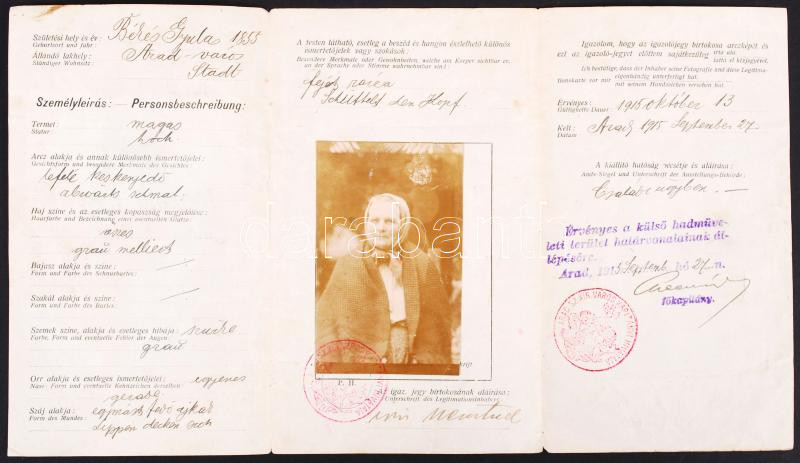 Születési hely és év: Békés Gyula 1855
Geburtsort und Jahr:
Állandó lakhely: Arad-város
Ständiger Wohnsitz: Stadt
Személyleirás: — Personsbeschreibung:
Termet: magas
Statur: hoch
Arcz alakja és annak különösebb ismertetőjelei:
Gesichtsform und besondere Merkmale des Gesichtes:
lefelé keskenyedő
abwärts schmal
Haj szine és az esetleges kopaszság megjelölése:
Haarfarbe und Bezeichnung einer eventuellen Glatze:
őszes
grau melliert
Bajusz alakja és szine:
Form und Farbe des Schnurbartes:
Szakál alakja és szine:
Form und Farbe des Bartes:
Szemek szine, alakja és esetleges hibája: szürke
Farbe, Form und eventuelle Fehler der Augen:
grau
Orr alakja és esetleges ismertetőjelei: egyenes
Nase: Form und eventuelle Kennzeichen derselben:
gerade
Száj alakja: egymást fedő ajkak
Form des Mundes: Lippen decken sich
A testen látható, esetleg a beszéd és hangon észlelhető különös
ismertetőjelek vagy szokások:
Besondere Merkmale oder Gewohnheiten, welche am Körper sichtbar er.
an der Sprache oder Stimme wahrnehmbar sind:
fejét rázza
Schüttelt den Kopf
P. H.
igaz. jegy birtokosának aláirása:
Unterschrift des Legitimationsinhabers:
Igazolom, hogy az igazolójegy birtokosa arczképét és
ezt az igazoló-jegyet előttem sajátkezűleg irta alá.
látta el kézjegyével.
Ich bestätige, dass der Inhaber seine Fotografie und diese Legitima-
tionskarte vor mir eigenhändig unterfertigt hat.
mit seinem Handzeichen versehen hat.
Érvényes: 1915 október 13
Gültigkeits Dauer:
Kelt: Arad, 1915 September 27.
Datum:
A kiállító hatóság pecsétje és aláirása:
Amts-Siegel und Unterschrift der Ausstellungs-Behörde:
Családi ügyben. —
Érvényes a külső hadműve-
leti terület határvonalainak át-
lépésére.
Arad, 1915 Septemb. hó 27-n.
főkapitány.
darabanth.com